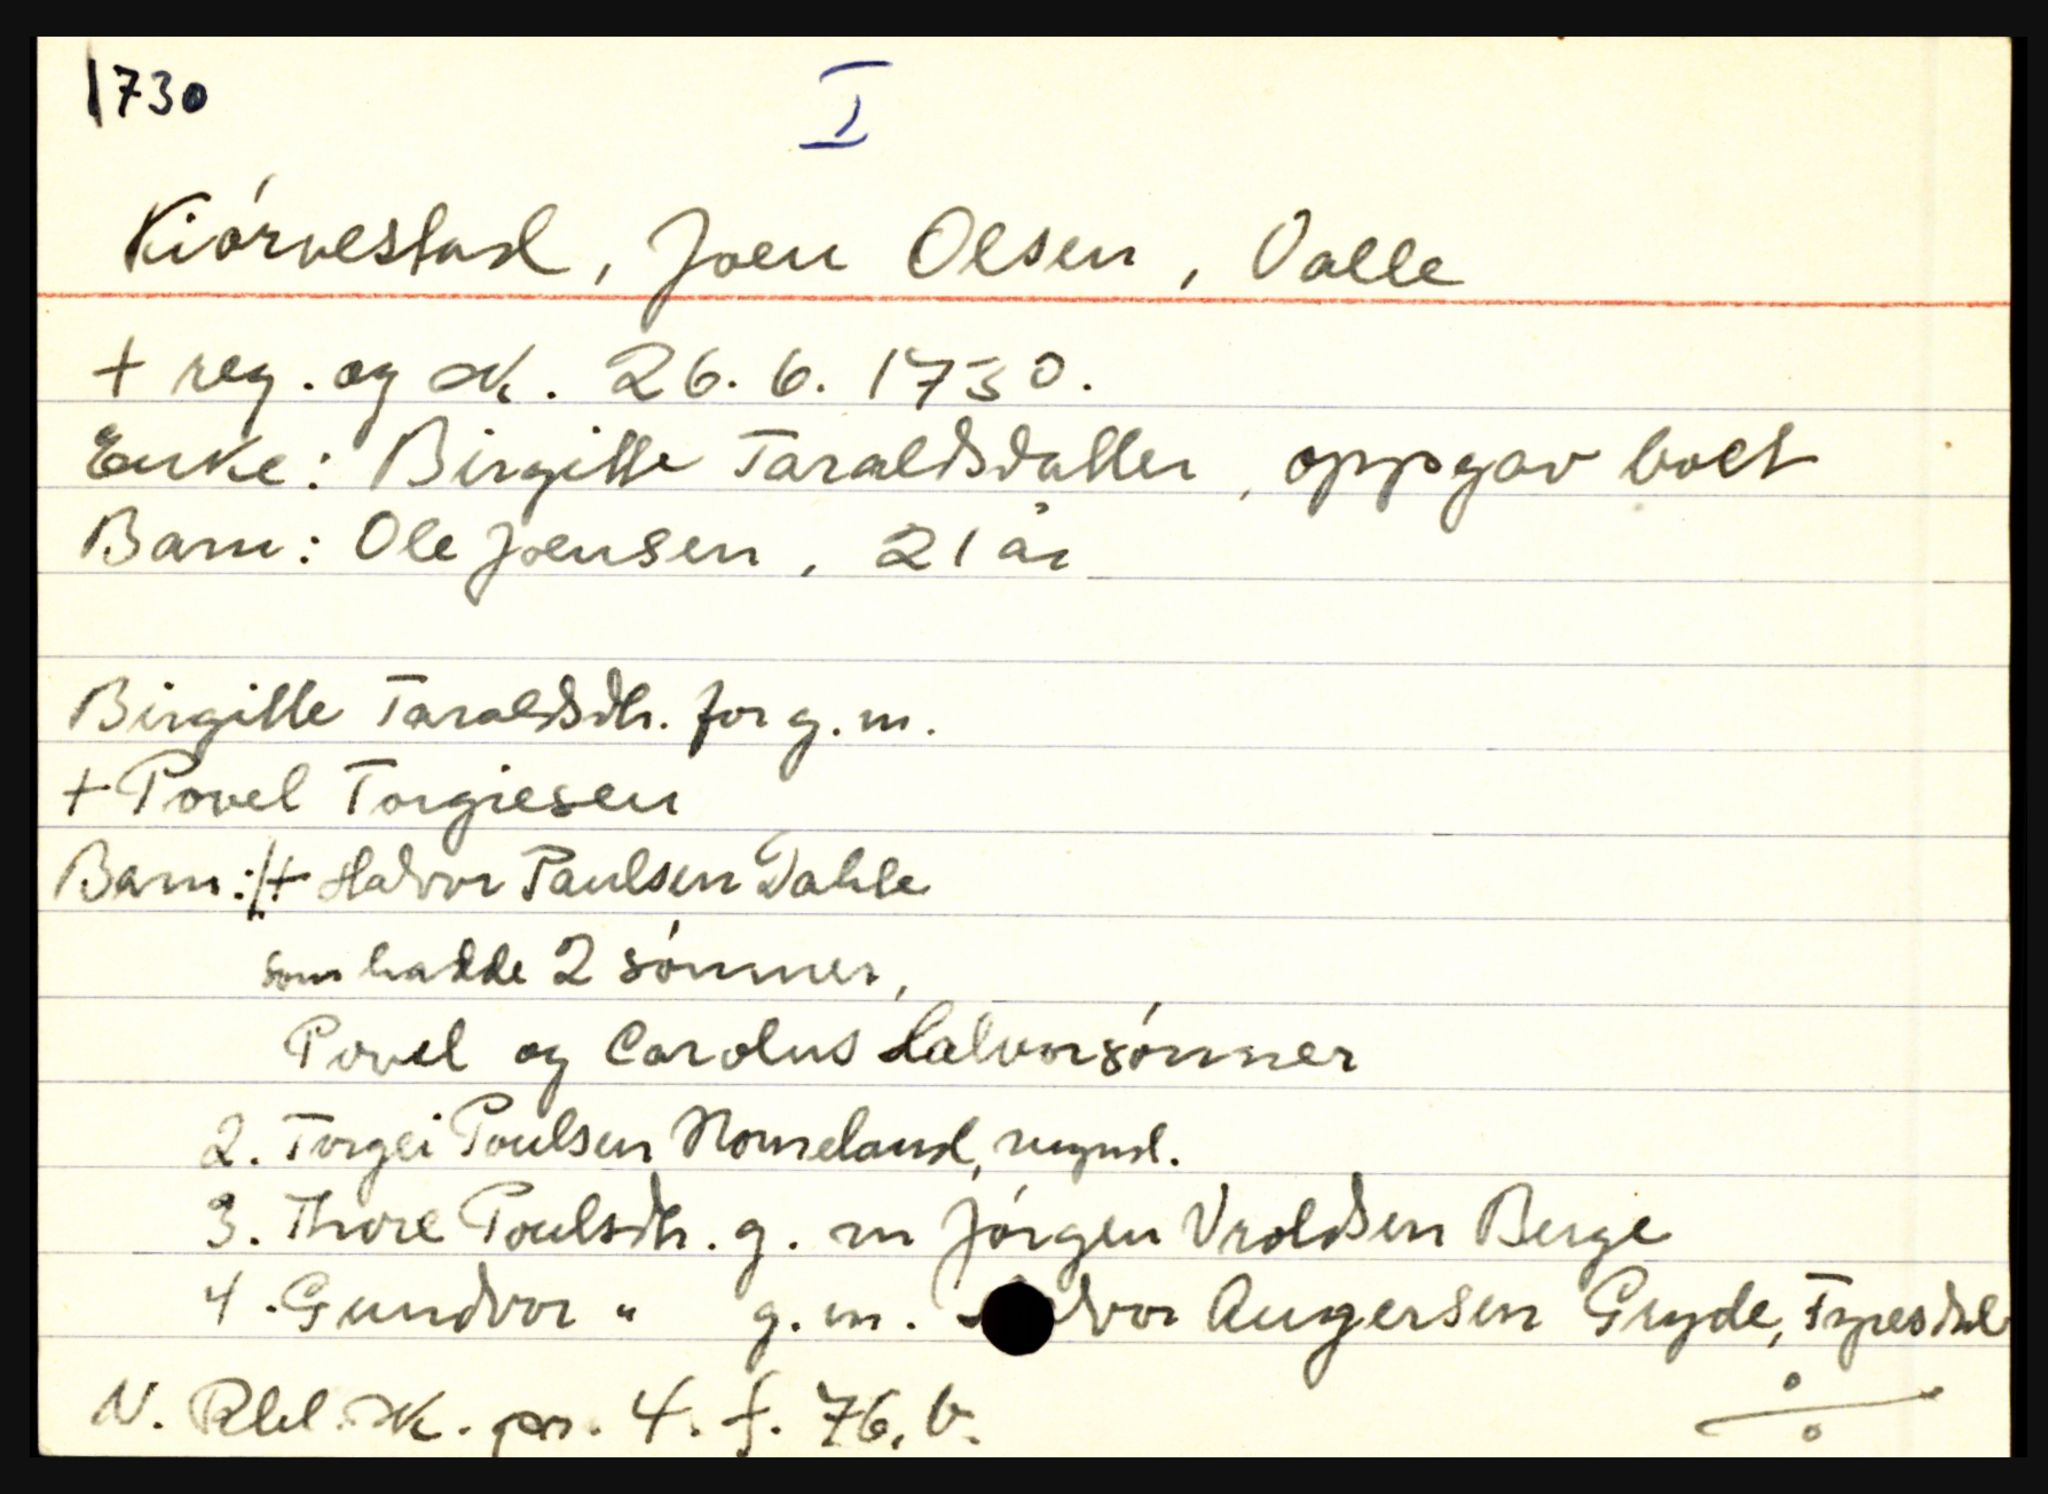 1730
I
Kiórvestad, Joen Olsen, Valle
+ reg. og sk. 26. 6. 1730.
Enke: Birgitte Taraldsdatter, oppgav boet
Barn: Ole Joensen, 21 år
Birgitte Taraldsdtr. for g. m.
+ Povel Torgiesen
Barn: 1. + Halvor Paulsen Dahle
som hadde 2 sónner,
Povel og Carolus Halvorsónner
2. Torgei Poulsen Homeland, mynd.
3. Thore Poulsdtr. g. m Jórgen Vroldsen Berge
4. Gundvor " g. m. Augersen Gryde, Fyresdal
N. Rbl. sk. pr. 4. f. 76. b.